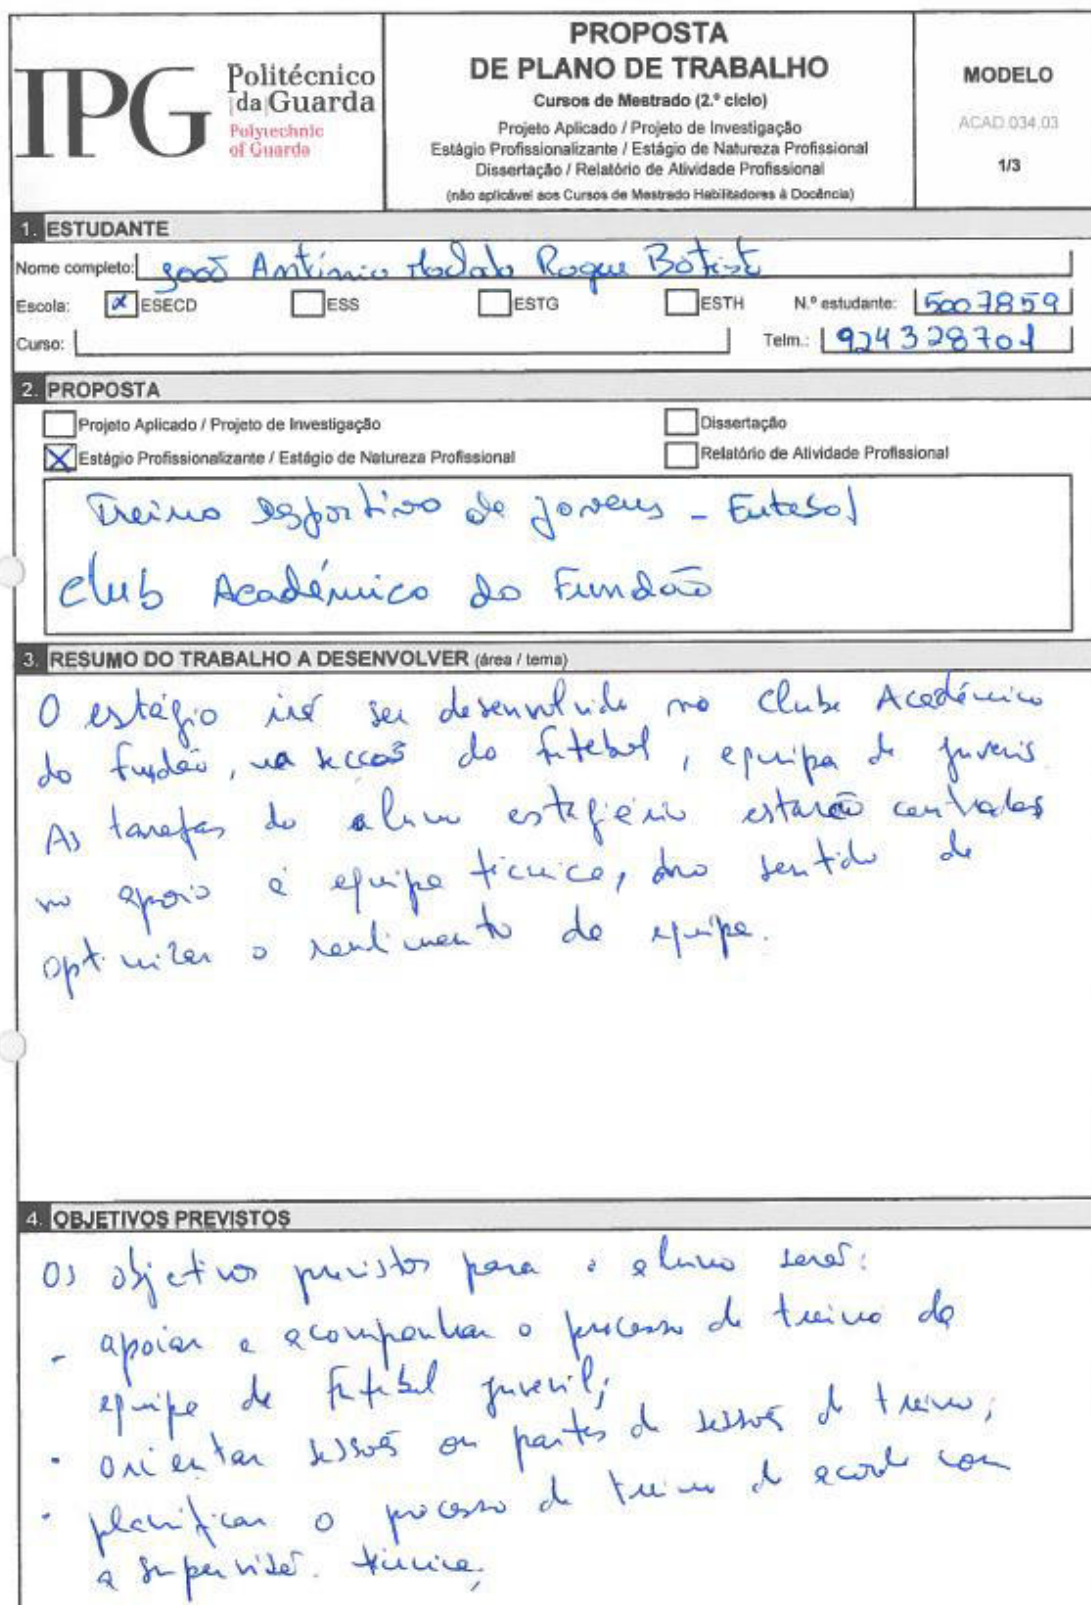 IPG Politécnico
da Guarda
Polytechnic
of Guarda
PROPOSTA
DE PLANO DE TRABALHO
Cursos de Mestrado (2.º ciclo)
Projeto Aplicado / Projeto de Investigação
Estágio Profissionalizante / Estágio de Natureza Profissional
Dissertação / Relatório de Atividade Profissional
(não aplicável aos Cursos de Mestrado Habilitadores à Docência)
MODELO
ACAD.034.03
1/3
1. ESTUDANTE
Nome completo: João António Roque Batista
Escola: x ESECD ESS ESTG ESTH N.º estudante: 5007859
Curso: Telm.: 924328701
2. PROPOSTA
Projeto Aplicado / Projeto de Investigação Dissertação
X Estágio Profissionalizante / Estágio de Natureza Profissional Relatório de Atividade Profissional
Treino desportivo de jovens - Futebol
Club Académico do Fundão
3. RESUMO DO TRABALHO A DESENVOLVER (área / tema)
O estágio irá ser desenvolvido no Clube Académico
do fundão, na secção do futebol, equipa de juvenis
As tarefas do aluno estagiário estarão centradas
no apoio à equipa técnica, no sentido de
optimizar o rendimento da equipa.
4. OBJETIVOS PREVISTOS
Os objetivos previstos para o aluno serão:
- apoiar e acompanhar o processo de treino da
equipa de futebol juvenil;
- orientar sessões ou partes de sessões de treino;
- planificar o processo de treino de acordo com
a supervisão técnica;